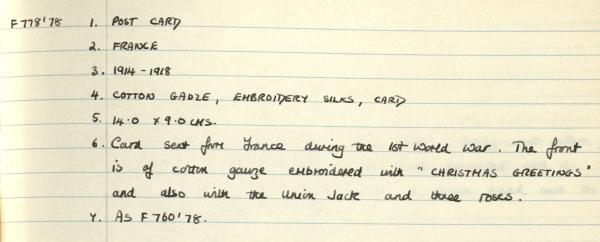 F 778'78 1. POST CARD
2. FRANCE
3. 1914-1918
4. COTTON GAUZE, EMBROIDERY SILKS, CARD
5. 14.0 x 9.0 CMS.
6. Card sent from France during the 1st World War. The front
is of cotton gauze embroidered with "CHRISTMAS GREETINGS"
and also with the Union Jack and three roses.
7. As F 760'78.